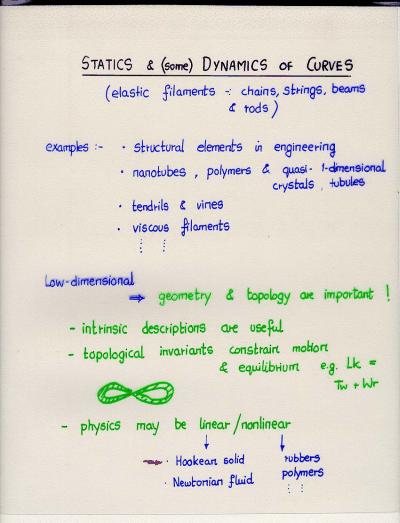 STATICS & (some) DYNAMICS OF CURVES
(elastic filaments -: chains, strings, beams
& rods)
examples :- · structural elements in engineering
· nanotubes, polymers & quasi-1-dimensional
crystals, tubules
· tendrils & vines
· viscous filaments
Low-dimensional
⇒ geometry & topology are important !
- intrinsic descriptions are useful
- topological invariants constrain motion
& equilibrium e.g. Lk =
Tw + Wr
- physics may be linear/nonlinear
· Hookean solid rubbers
polymers
· Newtonian fluid